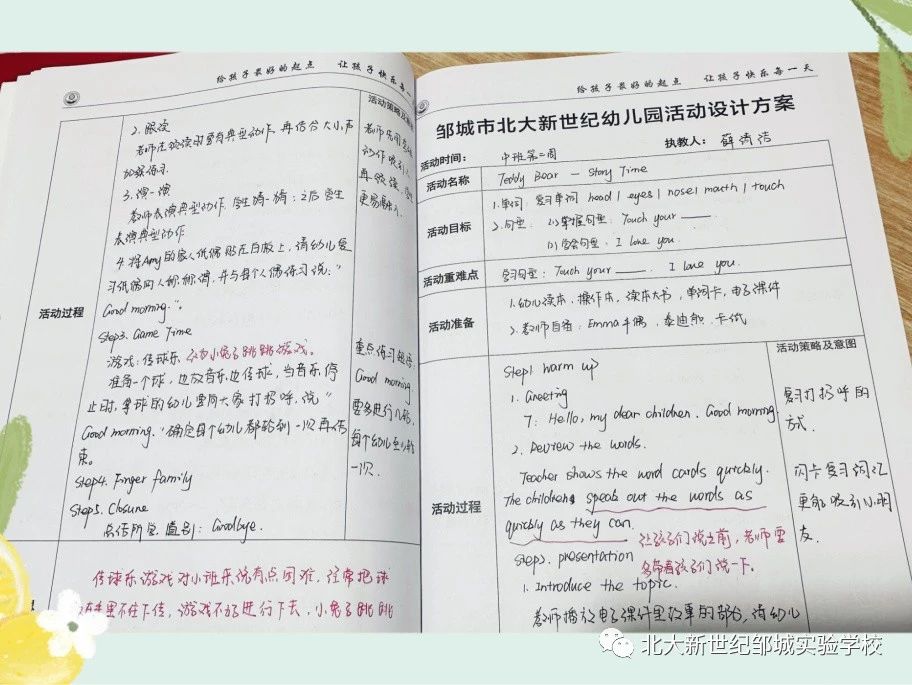 给孩子最好的起点 让孩子快乐每一
活动策略及意
2. 跟读
老师在领读时要有典型动作,再结合大小声
加强练习.
3. 演一演
教师表演典型动作,学生猜一猜;之后学生
表演典型动作
4. 将Amy的家人纸偶贴在白板上,请幼儿复
习纸偶的人物称谓,并与每个人偶练习说:"
Good morning.".
活动过程
Step3. Game Time
游戏:传球乐. 改为小兔子跳跳游戏。
准备一个球,边放音乐边传球,当音乐停
止时,拿球的幼儿要向大家打招呼,说"
Good morning."确定每个幼儿都轮到一次再结
束。
Step4. Finger family
Step5. Closure
总结所学,道别:Goodbye.
老师先用
动作吸引
再领读,
更易融入.
重点练习短语:
Good morning
要多进行几轮,
每个幼儿至少轮
一次.
传球乐游戏对小班来说有点困难,经常把球
不往下传,游戏不能进行下去,小兔子跳跳
给孩子最好的起点 让孩子快乐每一天
邹城市北大新世纪幼儿园活动设计方案
活动时间: 中班第二周 执教人:
活动名称 Teddy Bear — Story Time
活动目标 1. 单词:复习单词 head / eyes / nose / mouth / touch
2. 句型: (1) 掌握句型:Touch your ____.
(2) 学会句型:I love you.
活动重难点 复习句型:Touch your ____. I love you.
活动准备 1. 幼儿读本,操作本,读本大书,单词卡,电子课件
2. 教师自备:Emma手偶,泰迪熊,卡纸
活动策略及意图
Step1 Warm up
1. Greeting
T: Hello, my dear children. Good morning
2. Review the words.
Teacher shows the word cards quickly.
The childrens speak out the words as
quickly as they can.
让孩子们说之前,老师要
多带着孩子们说一下。
活动过程
Step2. presentation
1. Introduce the topic.
教师播放电子课件里故事的部分,请幼儿
复习打招呼的
方式.
闪卡复习词汇
更能吸引小朋
友.
北大新世纪邹城实验学校